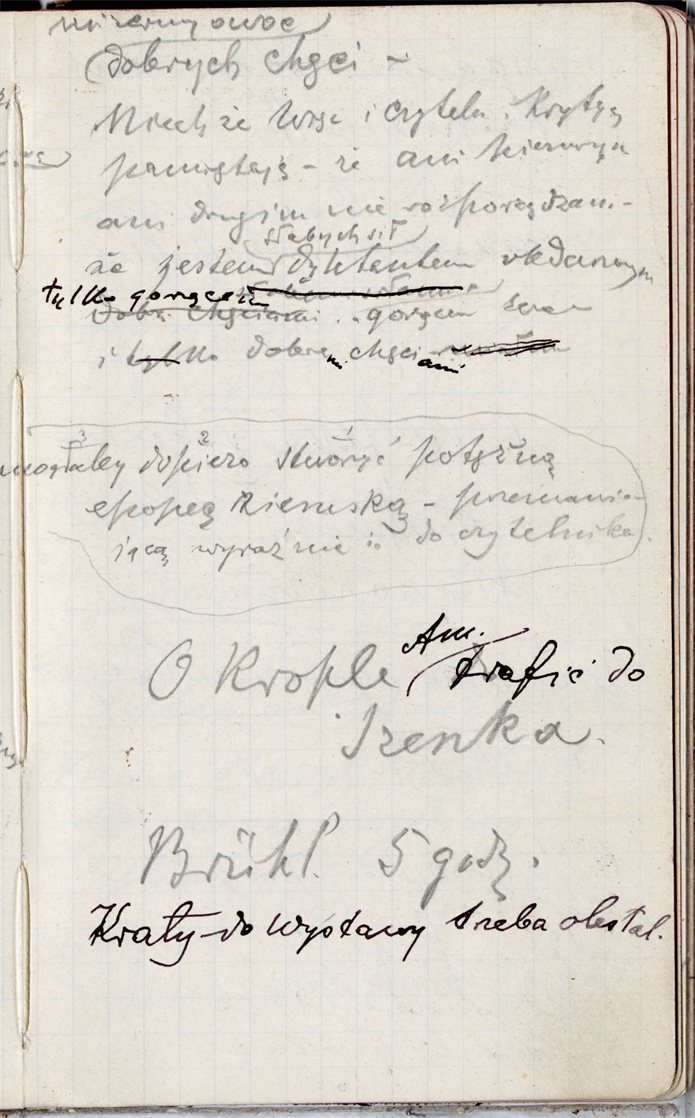 mizerny owoc
dobrych chęci –
Niech że więc i czyteln. i krytycy
pamiętają – że ani pierwszym
ani drugim nie rozporządzam. –
słabych sił
że jestem dyletantem obdarzonym
tylko gorącem
dobr. chęciami. gorącem
i tylko dobremi chęciami
3 2 1
mogłaby dopiero stworzyć potężną
epopeę – przemawia-
jącą wyraźnie do czytelnika.
O Krople Am. trafić do
Irenka.
Brühl. 5 godz.
Kraty do wystawy trzeba obstal.